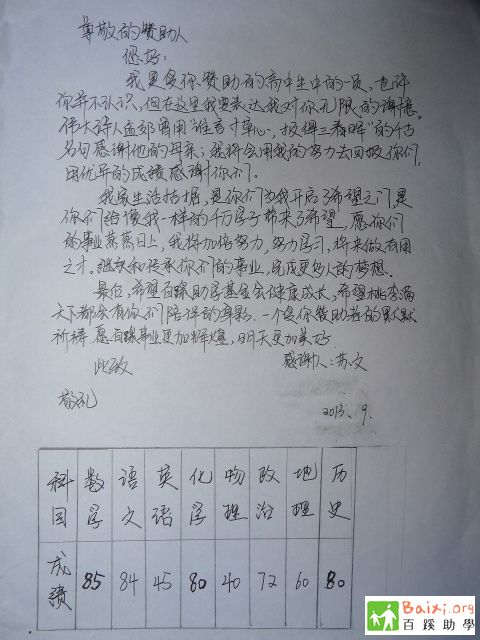 尊敬的赞助人
您好：
我是受你赞助的高中生中的一员，也许
你并不认识，但在这里我要表达我对你无限的谢意。
伟大诗人孟郊曾用"谁言寸草心，报得三春晖"的千古
名句感谢他的母亲；我将会用我的努力去回报你们，
用优异的成绩感谢你们。
我家生活拮据，是你们为我开启了希望之门，是
你们给像我一样的千万学子带来了希望，愿你们
的事业蒸蒸日上，我将加倍努力，努力学习，将来做有用
之才。继续和传承你们的事业，完成更多人的梦想。
最后，希望百蹊助学基金会健康成长，希望桃李满
天下都会有你们陪伴的身影。一个受你赞助者的默默
祈祷 愿百蹊事业更加辉煌，明天更加美好
此致 感谢人：苏文
敬礼
2013、9、
科目 数学 语文 英语 化学 物理 政治 地理 历史
成绩 85 84 45 80 40 72 60 80
Baixi.org
百蹊助學